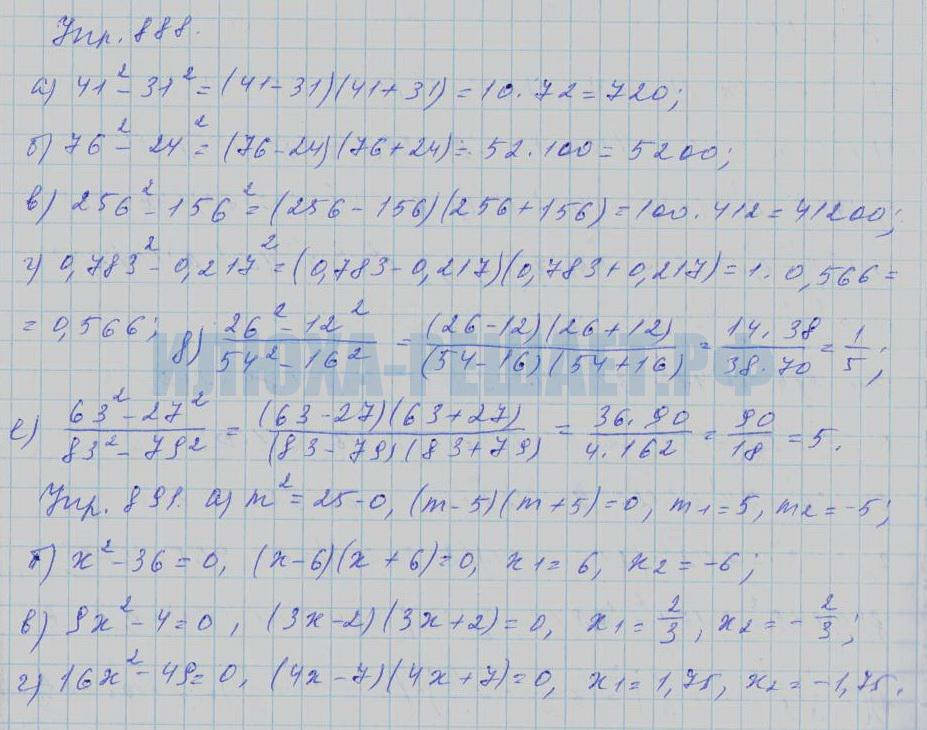 Упр. 888.
а) 41² - 31² = (41-31)(41+31) = 10·72 = 720;
б) 76² - 24² = (76-24)(76+24) = 52·100 = 5200;
в) 256² - 156² = (256-156)(256+156) = 100·412 = 41200;
г) 0,783² - 0,217² = (0,783-0,217)(0,783+0,217) = 1·0,566 =
= 0,566; д) (26² - 12²)/(54² - 16²) = (26-12)(26+12)/(54-16)(54+16) = 14·38/38·70 = 1/5;
ИЛЮХА-РЕШАЕТ.РФ
е) (63² - 27²)/(83² - 79²) = (63-27)(63+27)/(83-79)(83+79) = 36·90/4·162 = 90/18 = 5.
Упр. 891. а) m² = 25-0, (m-5)(m+5)=0, m1=5, m2=-5;
б) x² - 36 = 0, (x-6)(x+6)=0, x1=6, x2=-6;
в) 9x² - 4 = 0, (3x-2)(3x+2)=0, x1=2/3, x2=-2/3;
г) 16x² - 49 = 0, (4x-7)(4x+7)=0, x1=1,75, x2=-1,75.